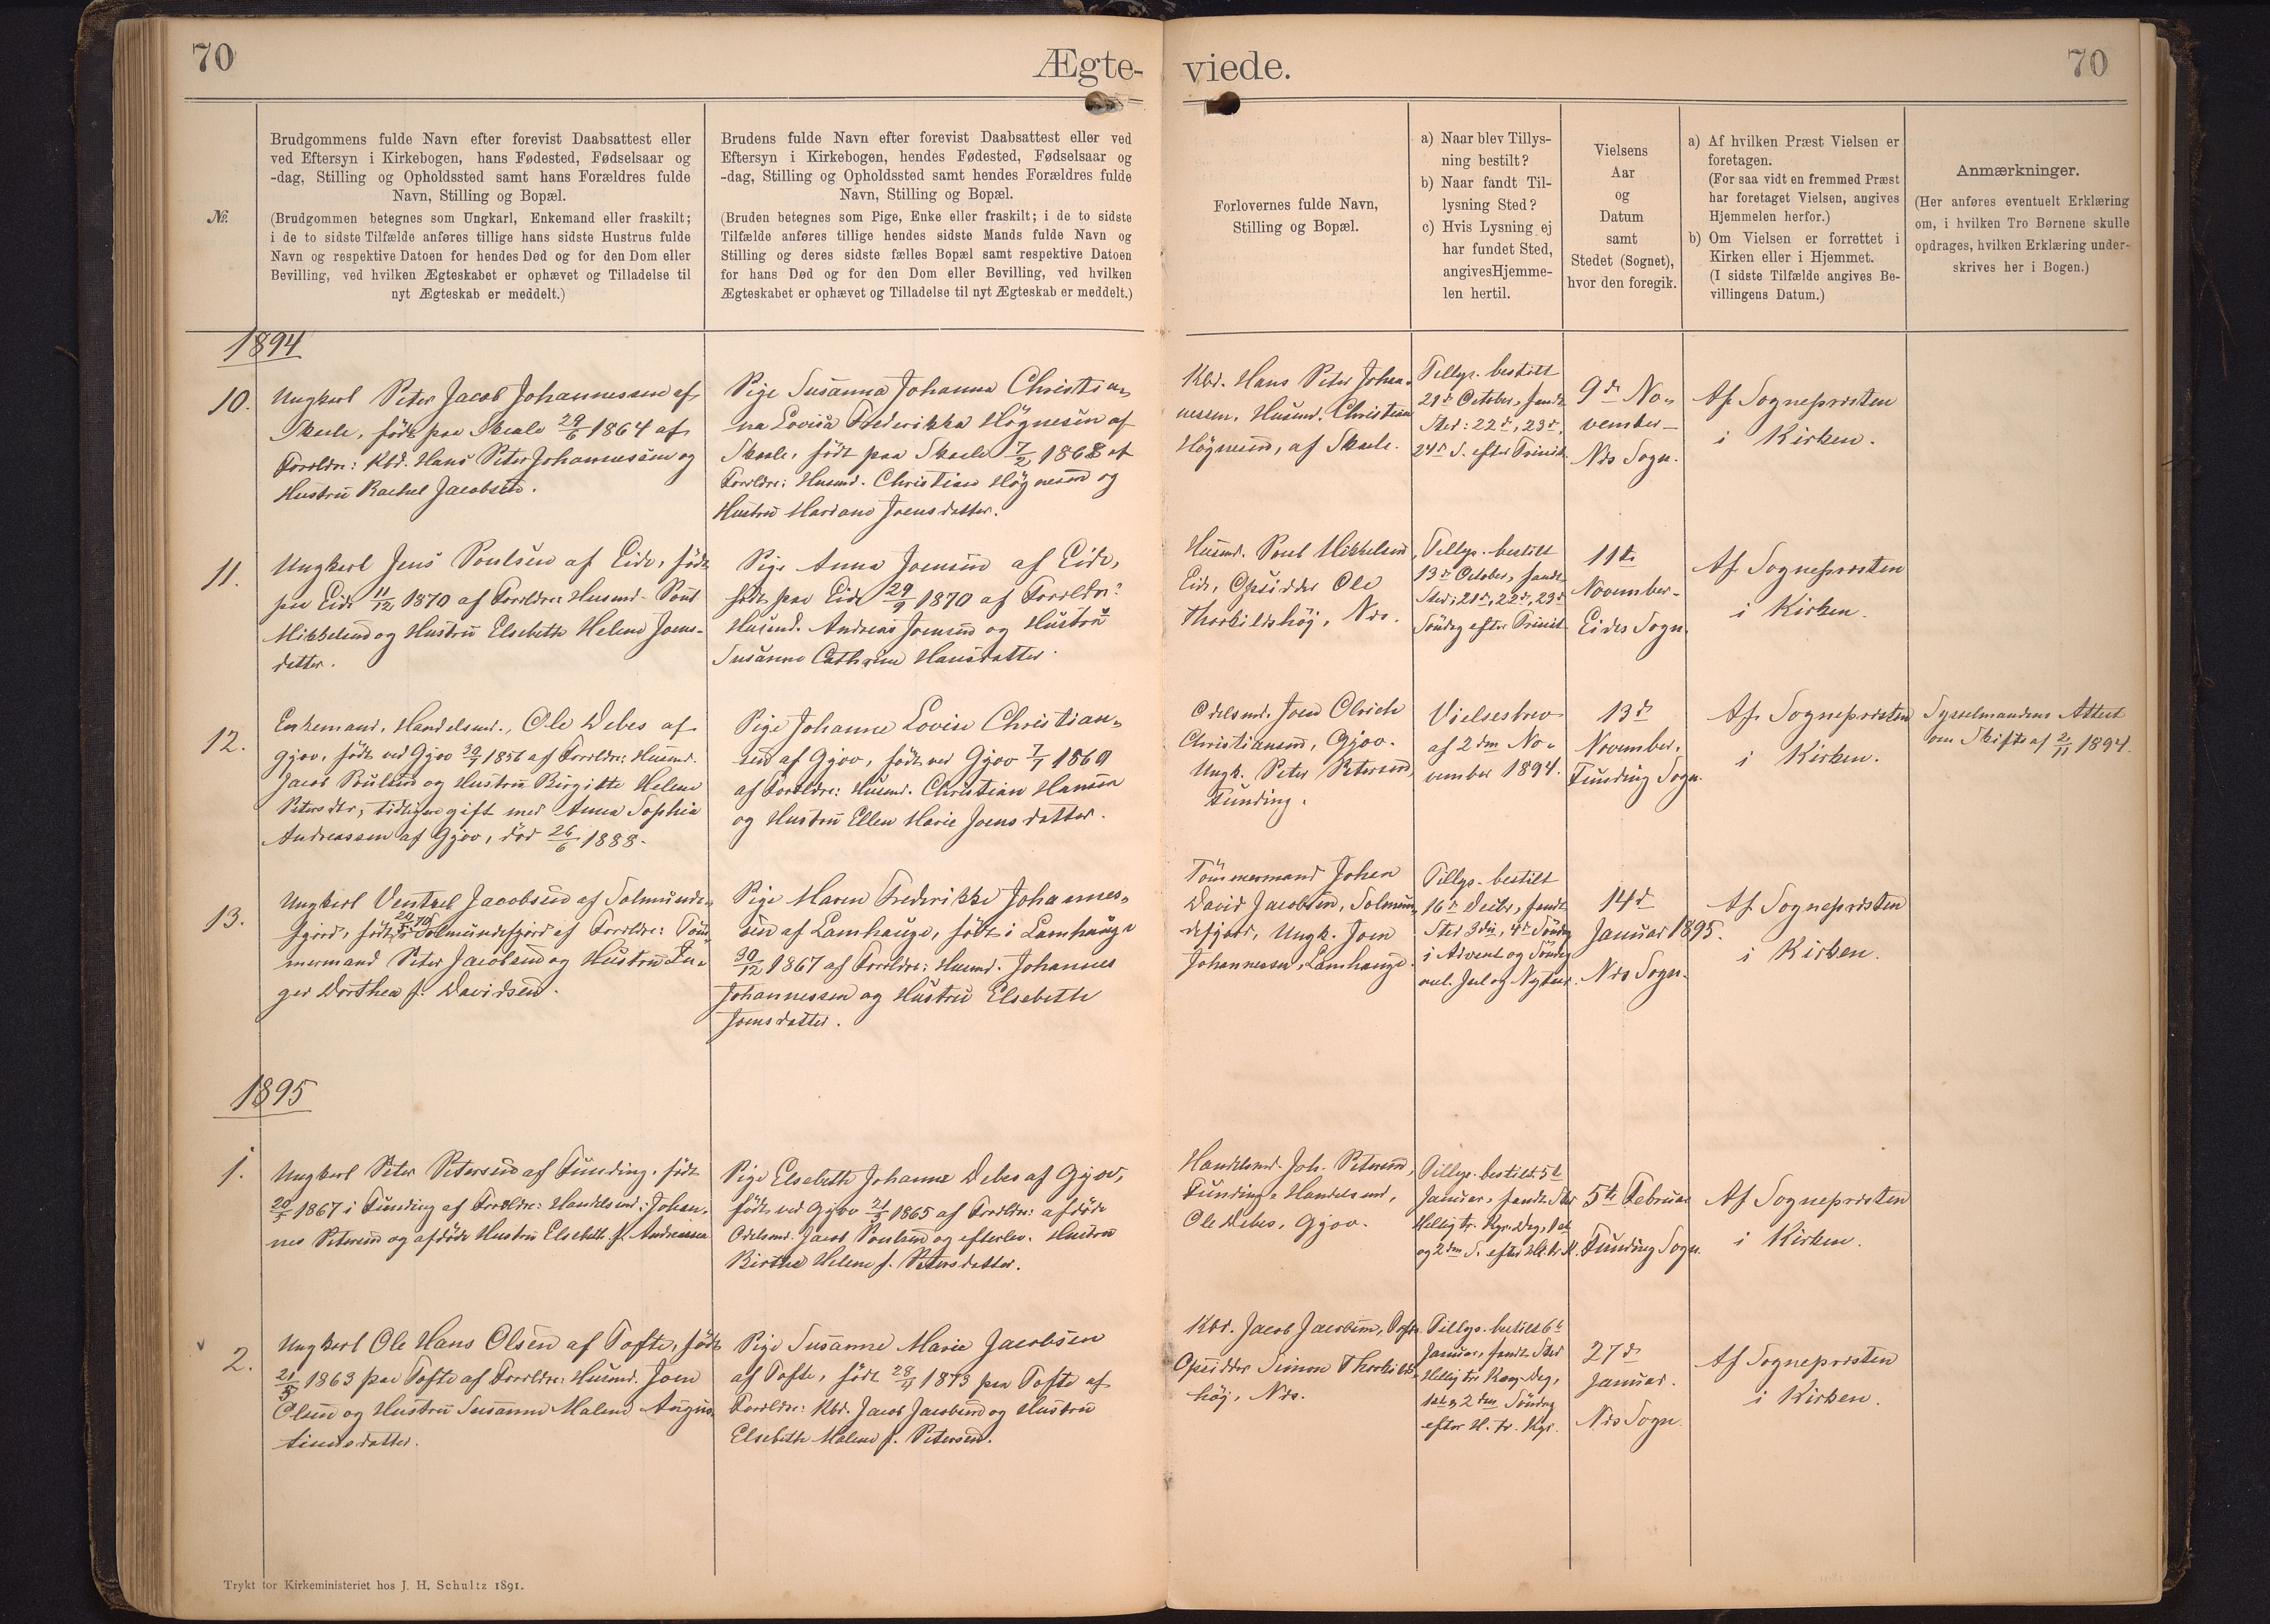 70
Ægte-
viede.
70
№.
Brudgommens fulde Navn efter forevist Daabsattest eller
ved Eftersyn i Kirkebogen, hans Fødested, Fødselsaar og
-dag, Stilling og Opholdssted samt hans Forældres fulde
Navn, Stilling og Bopæl.
(Brudgommen betegnes som Ungkarl, Enkemand eller fraskilt;
i de to sidste Tilfælde anføres tillige hans sidste Hustrus fulde
Navn og respektive Datoen for hendes Død og for den Dom eller
Bevilling, ved hvilken Ægteskabet er ophævet og Tilladelse til
nyt Ægteskab er meddelt.)
Brudens fulde Navn efter forevist Daabsattest eller ved
Eftersyn i Kirkebogen, hendes Fødested, Fødselsaar og
-dag, Stilling og Opholdssted samt hendes Forældres fulde
Navn, Stilling og Bopæl.
(Bruden betegnes som Pige, Enke eller fraskilt; i de to sidste
Tilfælde anføres tillige hendes sidste Mands fulde Navn og
Stilling og deres sidste fælles Bopæl samt respektive Datoen
for hans Død og for den Dom eller Bevilling, ved hvilken
Ægteskabet er ophævet og Tilladelse til nyt Ægteskab er meddelt.)
Forlovernes fulde Navn,
Stilling og Bopæl.
a) Naar blev Tillys-
ning bestilt?
b) Naar fandt Til-
lysning Sted?
c) Hvis Lysning ej
har fundet Sted,
angivesHjemme-
len hertil.
Vielsens
Aar
og
Datum
samt
Stedet (Sognet),
hvor den foregik.
a) Af hvilken Præst Vielsen er
foretagen.
(For saa vidt en fremmed Præst
har foretaget Vielsen, angives
Hjemmelen herfor.)
b) Om Vielsen er forrettet i
Kirken eller i Hjemmet.
(I sidste Tilfælde angives Be-
villingens Datum.)
Anmærkninger.
(Her anføres eventuelt Erklæring
om, i hvilken Tro Børnene skulle
opdrages, hvilken Erklæring under-
skrives her i Bogen.)
1894
10.
Ungkarl Peter Jacob Johannessen af
Skaale, født paa Skaale 29/6 1864 af
Forældre: Kbd. Hans Peter Johannessen og
Hustru Rachel Jacobsen.
Pige Susanna Johanna Christia-
na Lovisa Frederikka Högnesen af
Skaale, født paa Skaale 7/2 1868 af
Forældre: Husmd. Christian Högnesen og
Hustru Mariane Joensdatter.
Kbd. Hans Peter Johan-
nessen, Husmd. Christian
Högnesen, af Skaale.
Tillys. bestilt
21d October, fandt
Sted: 22d, 23d,
24d S. efter Trinit.
9d No-
vember
Nds Sogn.
Af Sognepræsten
i Kirken.
11.
Ungkarl Jens Poulsen af Eide, født
paa Eide 11/12 1870 af Forældre: Husmd. Poul
Mikkelsen og Hustru Elsebeth Helene Joens-
datter.
Pige Anna Joensen af Eide,
født paa Eide 29/9 1870 af Forældre:
Husmd. Andreas Joensen og Hustru
Susanne Cathrine Hansdatter.
Husmd. Poul Mikkelsen,
Eide, Opsidder Ole
Thorkildshöj, Nds.
Tillys. bestilt
13d October, fandt
Sted: 21d, 22d, 23d
Söndag efter Trinit.
11te
November.
Eides Sogn.
Af Sognepræsten
i Kirken.
12.
Enkemand, Handelsmd., Ole Debes af
Gjov, født ved Gjov 30/7 1856 af Forældre: Husmd.
Jacob Poulsen og Hustru Birgitte Helene
Petersdtr; tidligere gift med Anna Sophia
Andreassen af Gjov, död 26/6 1888.
Pige Johanne Lovise Christian-
sen af Gjov, født ved Gjov 7/1 1869
af Forældre: Husmd. Christian Hansen
og Hustru Ellen Marie Joensdatter.
Odelsmd. Joen Olrich
Christiansen, Gjov.
Ungk. Peter Petersen,
Funding.
Vielsesbrev
af 2den No-
vember 1894.
13d
November.
Funding Sogn.
Af Sognepræsten
i Kirken.
Sysselmandens Attest
om Skifte af 2/11 1894.
13.
Ungkarl Ventzel Jacobsen af Solmunde-
fjord, født 20/5 70 i Solmundefjord af Forældre: Töm-
mermand Peter Jacobsen og Hustru In-
ger Dorthea f. Davidsen.
Pige Maren Frederikke Johannes-
sen af Lamhauge, født i Lamhauge
30/12 1867 af Forældre: Husmd. Johannes
Johannessen og Hustru Elsebeth
Joensdatter.
Tömmermand Johan
David Jacobsen, Solmun-
defjord, Ungk. Joen
Johannessen, Lamhauge.
Tillys. bestilt
16d Decbr, fandt
Sted 3die, 4de Söndag
i Advent og Söndag
mel. Jul og Nytaar.
14d
Januar 1895.
Nds Sogn.
Af Sognepræsten
i Kirken.
1895
1.
Ungkarl Peter Petersen af Funding, født
20/5 1867 i Funding af Forældre: Handelsmd: Johan-
nes Petersen og afdöde Hustru Elsebeth f. Andreassen
Pige Elsebeth Johanne Debes af Gjov,
født ved Gjov 21/5 1865 af Forældre: afdöde
Odelsmd. Jacob Poulsen og efterlev. Hustru
Birthe Helene f. Petersdatter.
Handelsmd. Joh. Petersen,
Funding. Handelsmd,
Ole Debes, Gjov.
Tillys. bestilt 5te
Januar, fandt Sted
Hellig tr. Kgr. Dag, 1ste
og 2den S. efter H. tr. K.
5te Februar
Funding Sogn.
Af Sognepræsten
i Kirken.
2.
Ungkarl Ole Hans Olsen af Tofte, født
21/5 1863 paa Tofte af Forældre: Husmd. Joen
Olsen og Hustru Susanne Malene Augus-
tinusdatter.
Pige Susanne Marie Jacobsen
af Tofte, født 28/9 1873 paa Tofte af
Forældre: Kbd. Jacob Jacobsen og Hustru
Elsebeth Malene f. Petersen.
Kbd. Jacob Jacobsen, Tofte.
Opsidder Simon Thorkilds-
höj, Nds.
Tillys. bestilt 6te
Januar, fandt Sted
Hellig tre Kong. Dag,
1ste og 2den Söndag
efter H. tr. Kgr.
27d
Januar.
Nds Sogn.
Af Sognepræsten
i Kirken.
Trykt for Kirkeministeriet hos J. H. Schultz 1891.